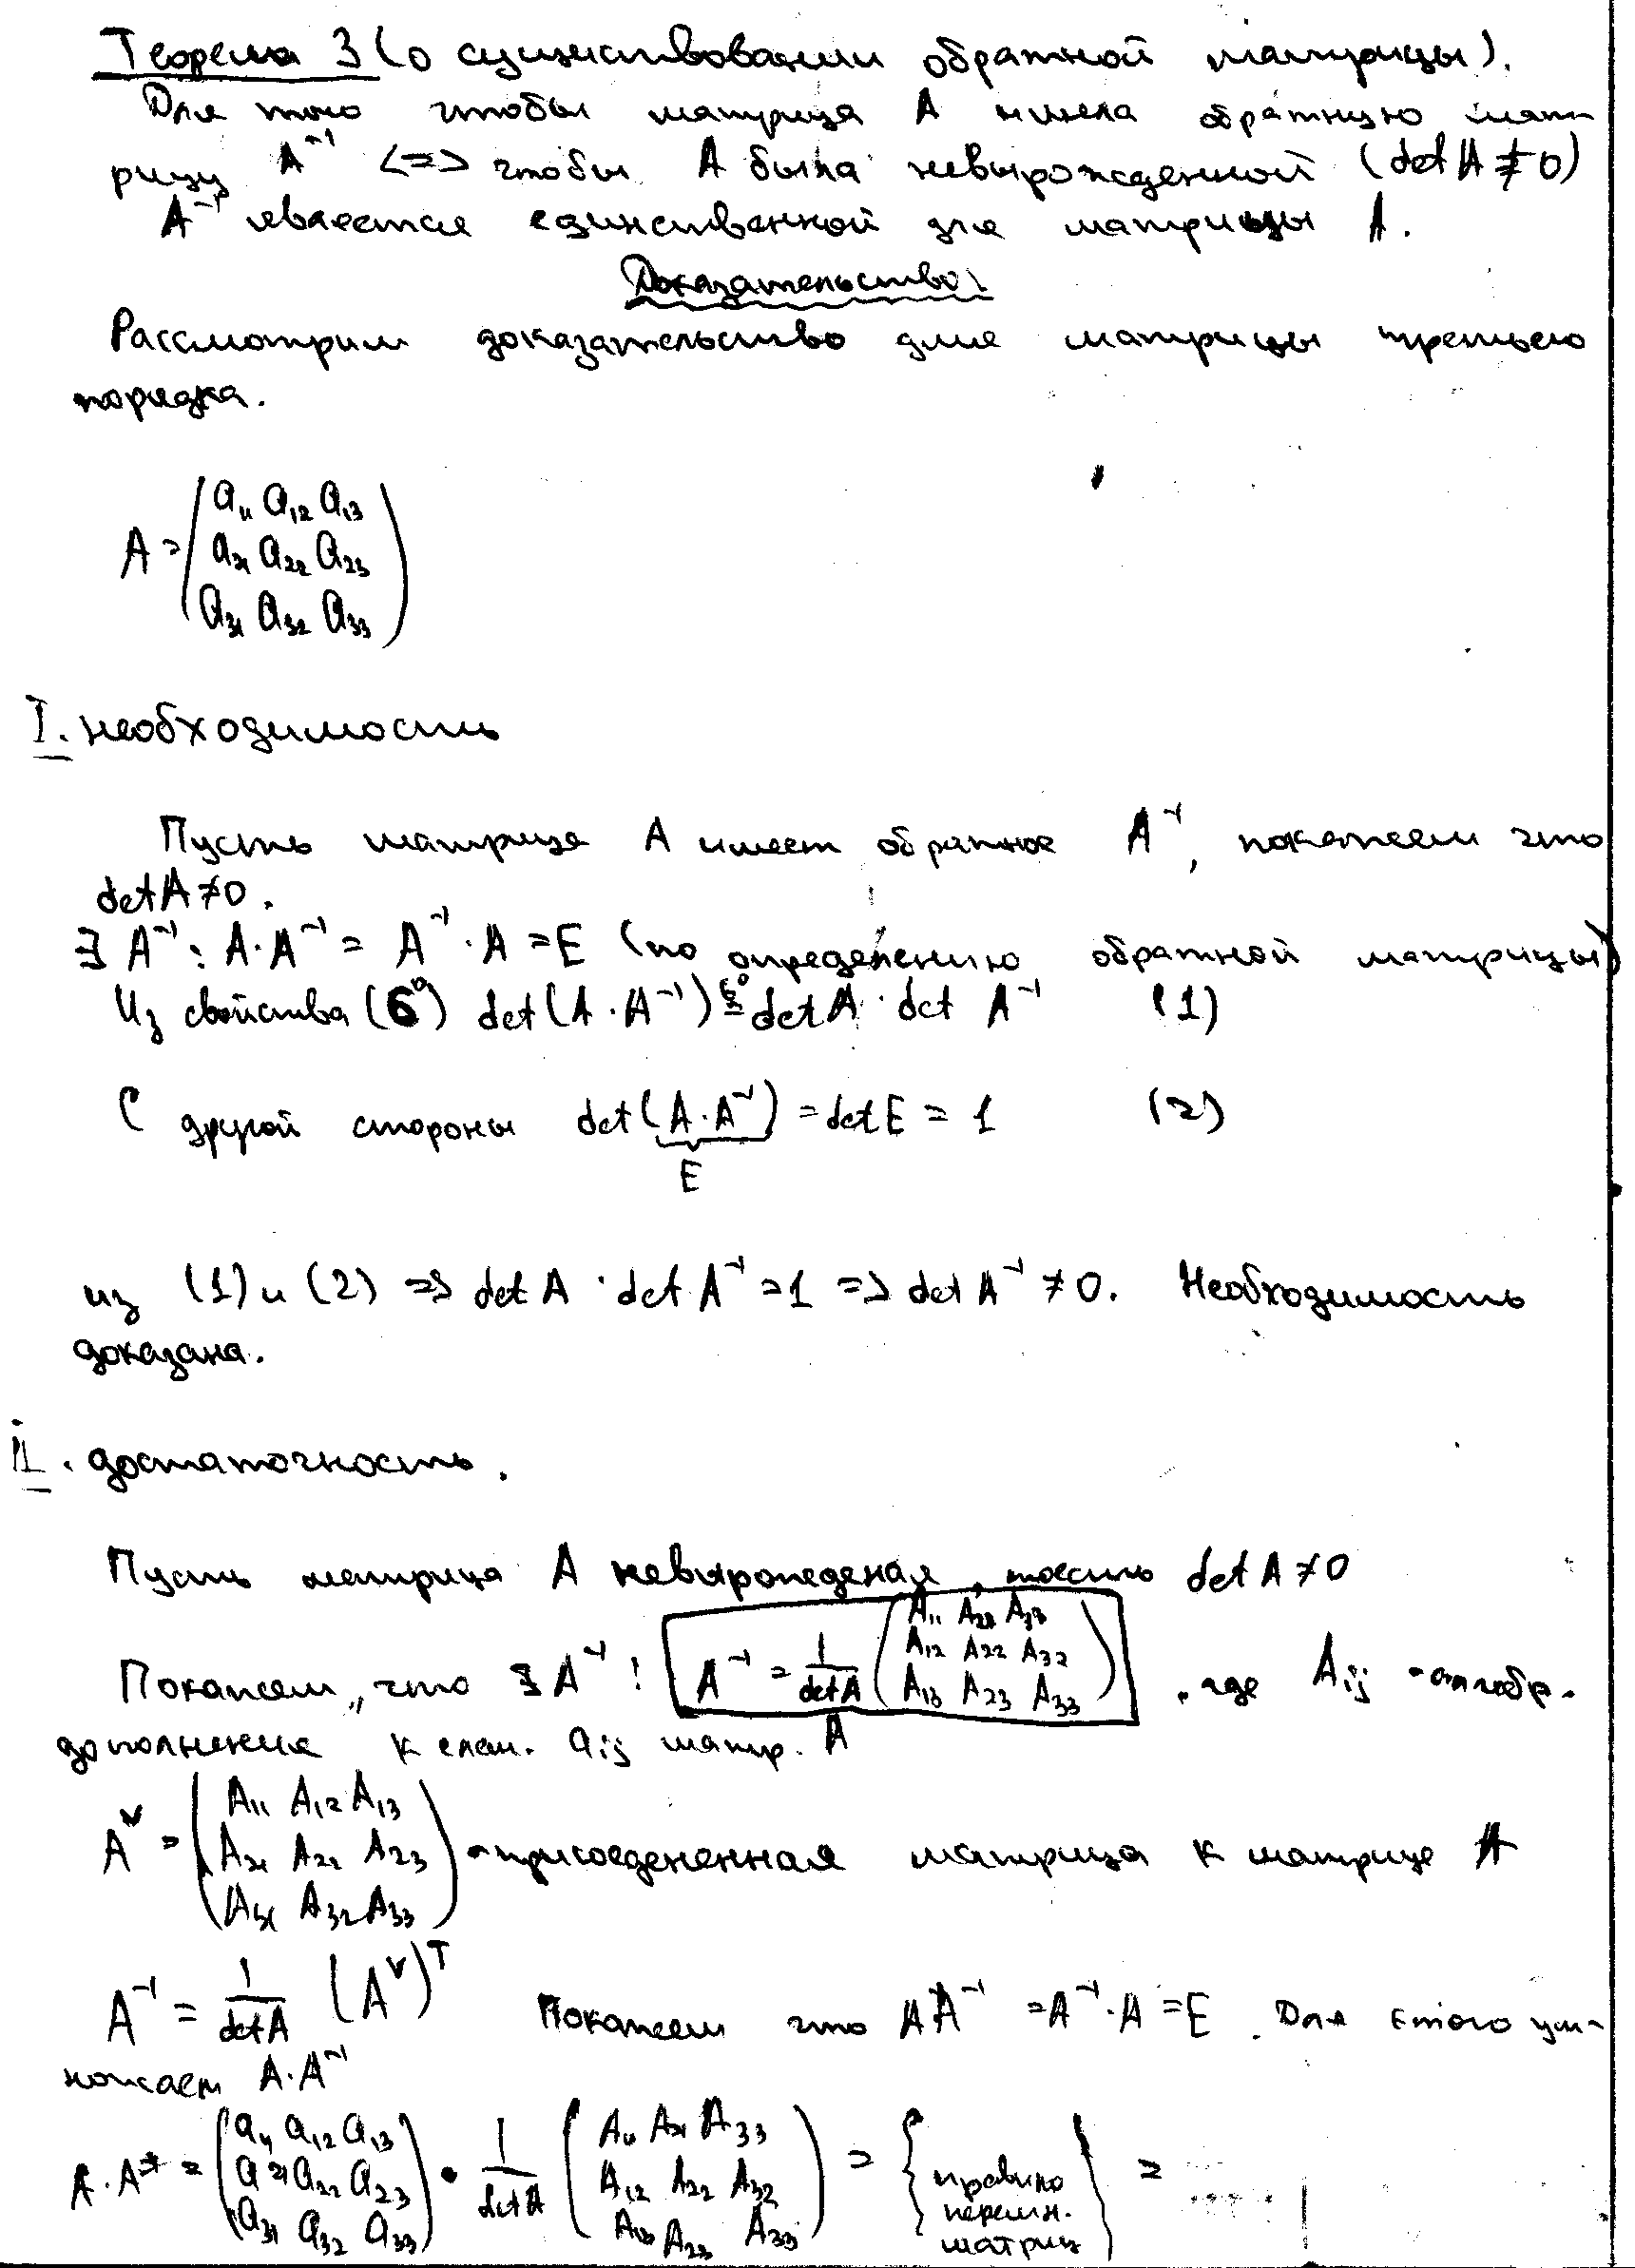 Теорема 3 (о существовании обратной матрицы).
Для того чтобы матрица A имела обратную мат-
рицу A⁻¹ <=> чтобы A была невырожденной (det A ≠ 0)
A⁻¹ является единственной для матрицы A.
Доказательство:
Рассмотрим доказательство для матрицы третьего
порядка.
A = ( a₁₁ a₁₂ a₁₃
a₂₁ a₂₂ a₂₃
a₃₁ a₃₂ a₃₃ )
I. необходимость
Пусть матрица A имеет обратное A⁻¹, покажем что
det A ≠ 0.
∃ A⁻¹: A·A⁻¹ = A⁻¹·A = E (по определению обратной матрицы)
Из свойства (6⁰) det(A·A⁻¹) = det A · det A⁻¹ (1)
С другой стороны det(A·A⁻¹) = det E = 1 (2)
E
из (1) и (2) => det A · det A⁻¹ = 1 => det A⁻¹ ≠ 0. Необходимость
доказана.
II. достаточность.
Пусть матрица A невырожденая, тоесть det A ≠ 0
Покажем, что ∃ A⁻¹: A⁻¹ = 1/det A ( A₁₁ A₂₁ A₃₁
A₁₂ A₂₂ A₃₂
A₁₃ A₂₃ A₃₃ ), где Aᵢⱼ - алгебр.
дополнение к элем. aᵢⱼ матр. A
Aᵛ = ( A₁₁ A₁₂ A₁₃
A₂₁ A₂₂ A₂₃
A₃₁ A₃₂ A₃₃ ) - присоедененная матрица к матрице A
A⁻¹ = 1/det A (Aᵛ)ᵀ Покажем что AA⁻¹ = A⁻¹·A = E. Для етого ум-
ножаем A·A⁻¹
A·A⁻¹ = ( a₁₁ a₁₂ a₁₃
a₂₁ a₂₂ a₂₃
a₃₁ a₃₂ a₃₃ ) · 1/det A ( A₁₁ A₂₁ A₃₃
A₁₂ A₂₂ A₃₂
A₁₃ A₂₃ A₃₃ ) = { правило
перемн.
матриц } =